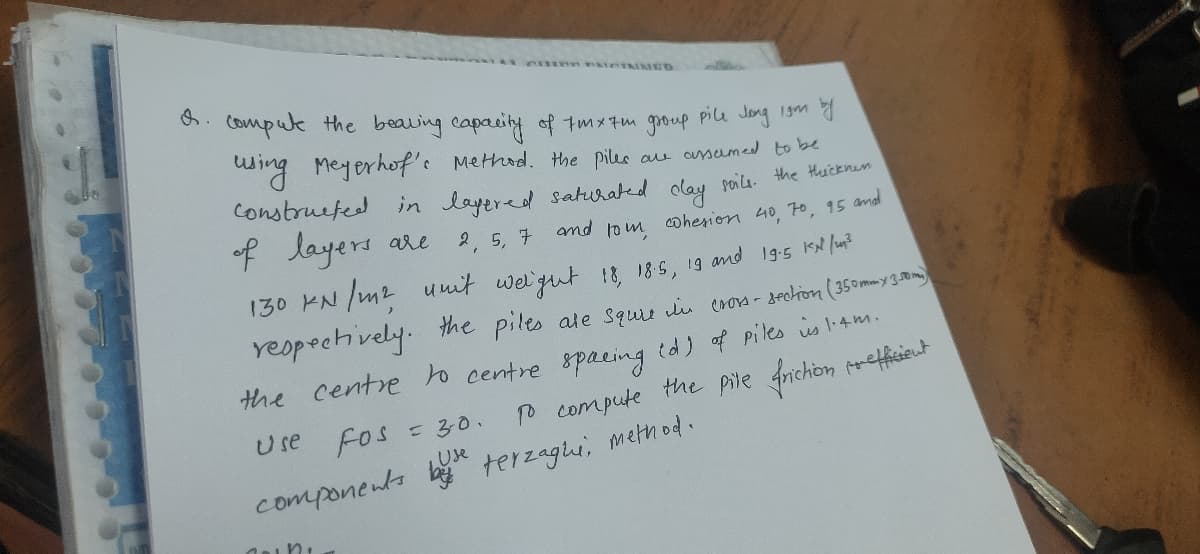 Q. Compute the bearing capacity of 7mx7m group pile long 19m by
using Meyerhof's Method. the piles are assumed to be
constructed in layered saturated clay soils. the thickness
of layers are 2, 5, 7 and 10m, cohesion 40, 70, 95 and
130 KN/m2, unit weight 18, 18.5, 19 and 19.5 KN/m3
respectively. the piles are squre in cross-section (350mmx350mm)
the centre to centre spacing (d) of piles is 1.4m.
Use FOS = 3.0. To compute the pile friction coefficient
components by Use terzaghi, method.